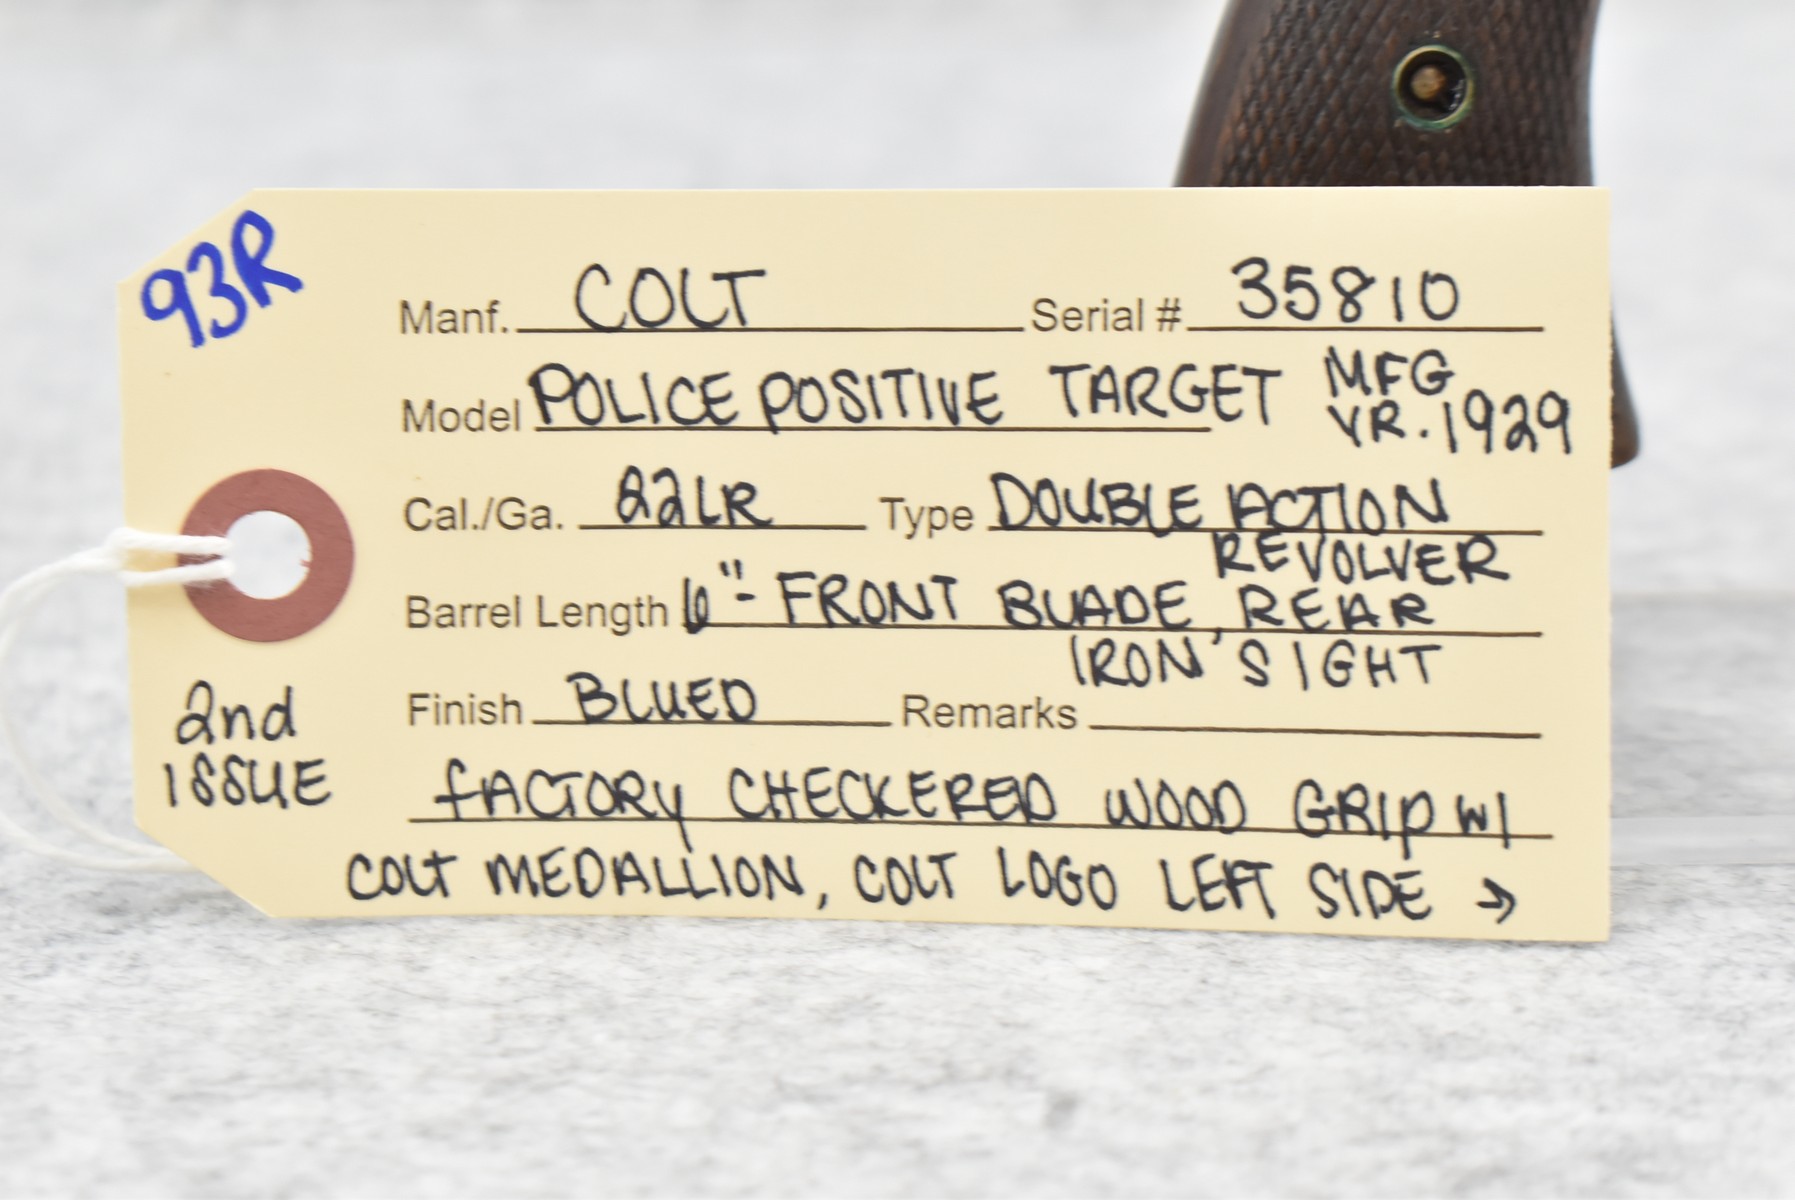 93R
Manf. COLT Serial # 35810
Model POLICE POSITIVE TARGET MFG
YR. 1929
Cal./Ga. 22LR Type DOUBLE ACTION
REVOLVER
Barrel Length 6"- FRONT BLADE, REAR
IRON SIGHT
Finish BLUED Remarks
2nd
ISSUE
FACTORY CHECKERED WOOD GRIP W/
COLT MEDALLION, COLT LOGO LEFT SIDE →